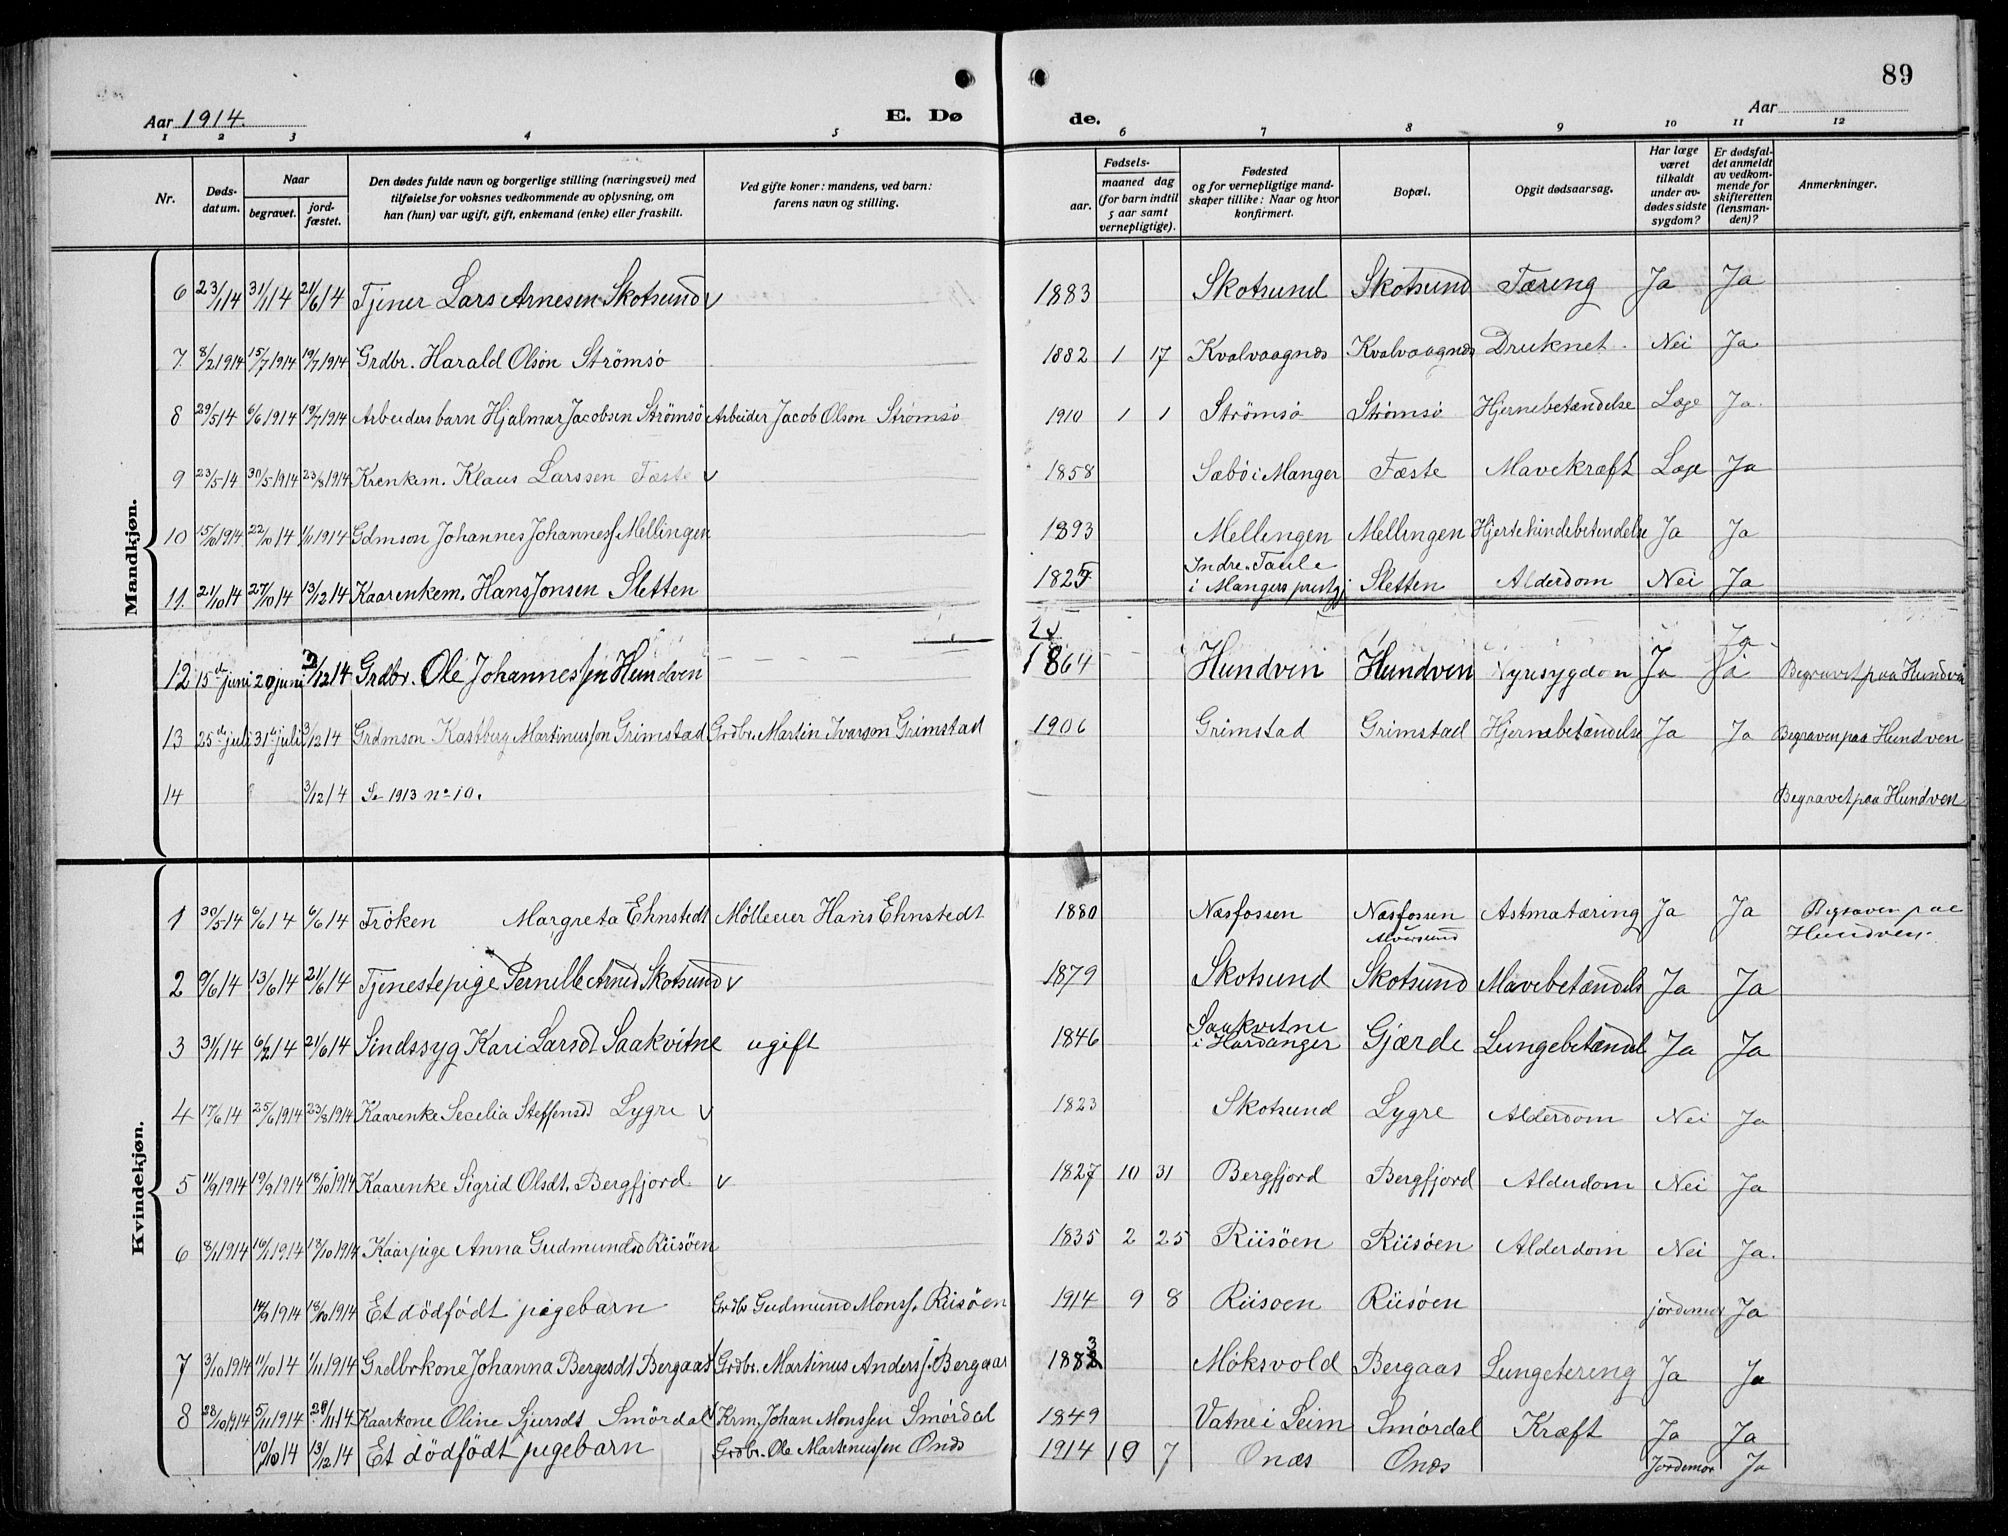 89
Aar 1914. E. Dø de. Aar
1 2 3 4 5 6 7 8 9 10 11 12
Nr. Døds-datum. Naar begravet. jord-fæstet. Den dødes fulde navn og borgerlige stilling (næringsvei) med tilføielse for voksnes vedkommende av oplysning, om han (hun) var ugift, gift, enkemand (enke) eller fraskilt. Ved gifte koner: mandens, ved barn: farens navn og stilling. Fødsels- aar. maaned dag (for barn indtil 5 aar samt vernepligtige). Fødested og for vernepligtige mand-skaper tillike: Naar og hvor konfirmert. Bopæl. Opgit dødsaarsag. Har læge været tilkaldt under av-dødes sidste sygdom? Er dødsfal-det anmeldt av vedkom-mende for skifteretten (lensman-den)? Anmerkninger.
Mandkjøn.
6 23/1 14 31/1 14 21/6 14 Tjener Lars Arnesen Skotsund v 1883 Skotsund Skotsund Tæring Ja Ja
7. 8/2 1914 15/7 1914 19/7 1914 Grdbr. Harald Olson Strömsö 1882 1 17 Kvalvaagnæs Kvalvaagnæs Druknet. Nei Ja
8 29/5 14 6/6 1914 19/7 1914 Arbeidersbarn Hjalmar Jacobsen Strömsö Arbeider Jacob Olson Strömsö 1910 1 1 Strömsö Strömsö Hjernebetændelse Læge Ja.
9 23/5 14 30/5 1914 23/8 1914 Krenkem. Klaus Larssen Fæste v 1858 Sæbö i Manger Fæste Mavekræft Læge Ja
10 15/10 1914 22/10 14 1/11 1914 Gdmson Johannes Johannesf. Mellingen 1893 Mellingen Mellingen Hjertehindebetendelse Ja Ja
11. 21/10 14 27/10 14 13/12 14 Kaarenkem. Hans Jonsen Sletten 1825 Indre-Taule i Mangers prestgj Sletten Alderdom Nei Ja
12 15de juni 20 juni 3/12 14 Grdbr. Ole Johannessen Hundven 1864 Hundven Hundven Nyresygdom Ja Ja Begravet paa Hundven
13 25de juli 31te juli 3/12 14 Grdmson Kastberg Martinusson Grimstad Grdbr. Martin Ivarson Grimstad 1906 Grimstad Grimstad Hjernebetændelse Ja Ja Begraven paa Hundven
14 3/12 14 Se 1913 no 10. Begravet paa Hundven
Kvindekjøn.
1 30/5 14 6/6 14 6/6 14 Fröken Margreta Ehnstedt Mølleeier Hans Ehnstedt 1880 Næsfossen Næsfossen Alversund Astmatæring Ja Ja Begraven paa Hundven.
2 9/6 14 13/6 14 21/6 14 Tjenestepige Pernille Arnesd Skotsund v 1879 Skotsund Skotsund Mavebetændels Ja Ja
3 31/1 14 6/2 14 21/6 14 Sindssyg Kari Larsdt Saakvitne ugift 1846 Saakvitne i Hardanger Gjærde Lungebetændel Ja Ja
4 17/6 14 25/6 1914 23/8 1914 Kaarenke Secelia Steffensd Lygre v 1823 Skotsund Lygre Alderdom Nei Ja
5 11/9 1914 19/9 1914 18/10 1914 Kaarenke Sigrid Olsdt. Bergfjord v 1827 10 31 Bergfjord Bergfjord Alderdom Nei Ja
6 8/1 1914 16/1 1914 18/10 1914 Kaarpige Anna Gudmundsd Riisöen 1835 2 25 Riisöen Riisöen Alderdom Nei Ja.
14/9 1914 18/10 1914 Et dödfödt pigebarn Grdbr Gudmund Monsf. Riisöen 1914 9 8 Riisoen Riisöen jordemor Ja
7 3/10 1914 11/10 14 1/11 1914 Grdbrkone Johanna Bergesdt Bergaas Grdbr. Martinus Andersf. Bergaas 1883 Möksvold Bergaas Lungetering Ja Ja
8 28/10 1914 5/11 1914 29/11 14 Kaarkone Oline Sjursdt Smördal Krm. Johan Monssen Smördal 1849 Vatne i Seim Smördal Kræft Ja Ja
10/10 14 13/12 14 Et dödfödt pigebarn Grdbr. Ole Martinussen Onæs 1914 10 7 Onæs Onæs Jordemor Ja